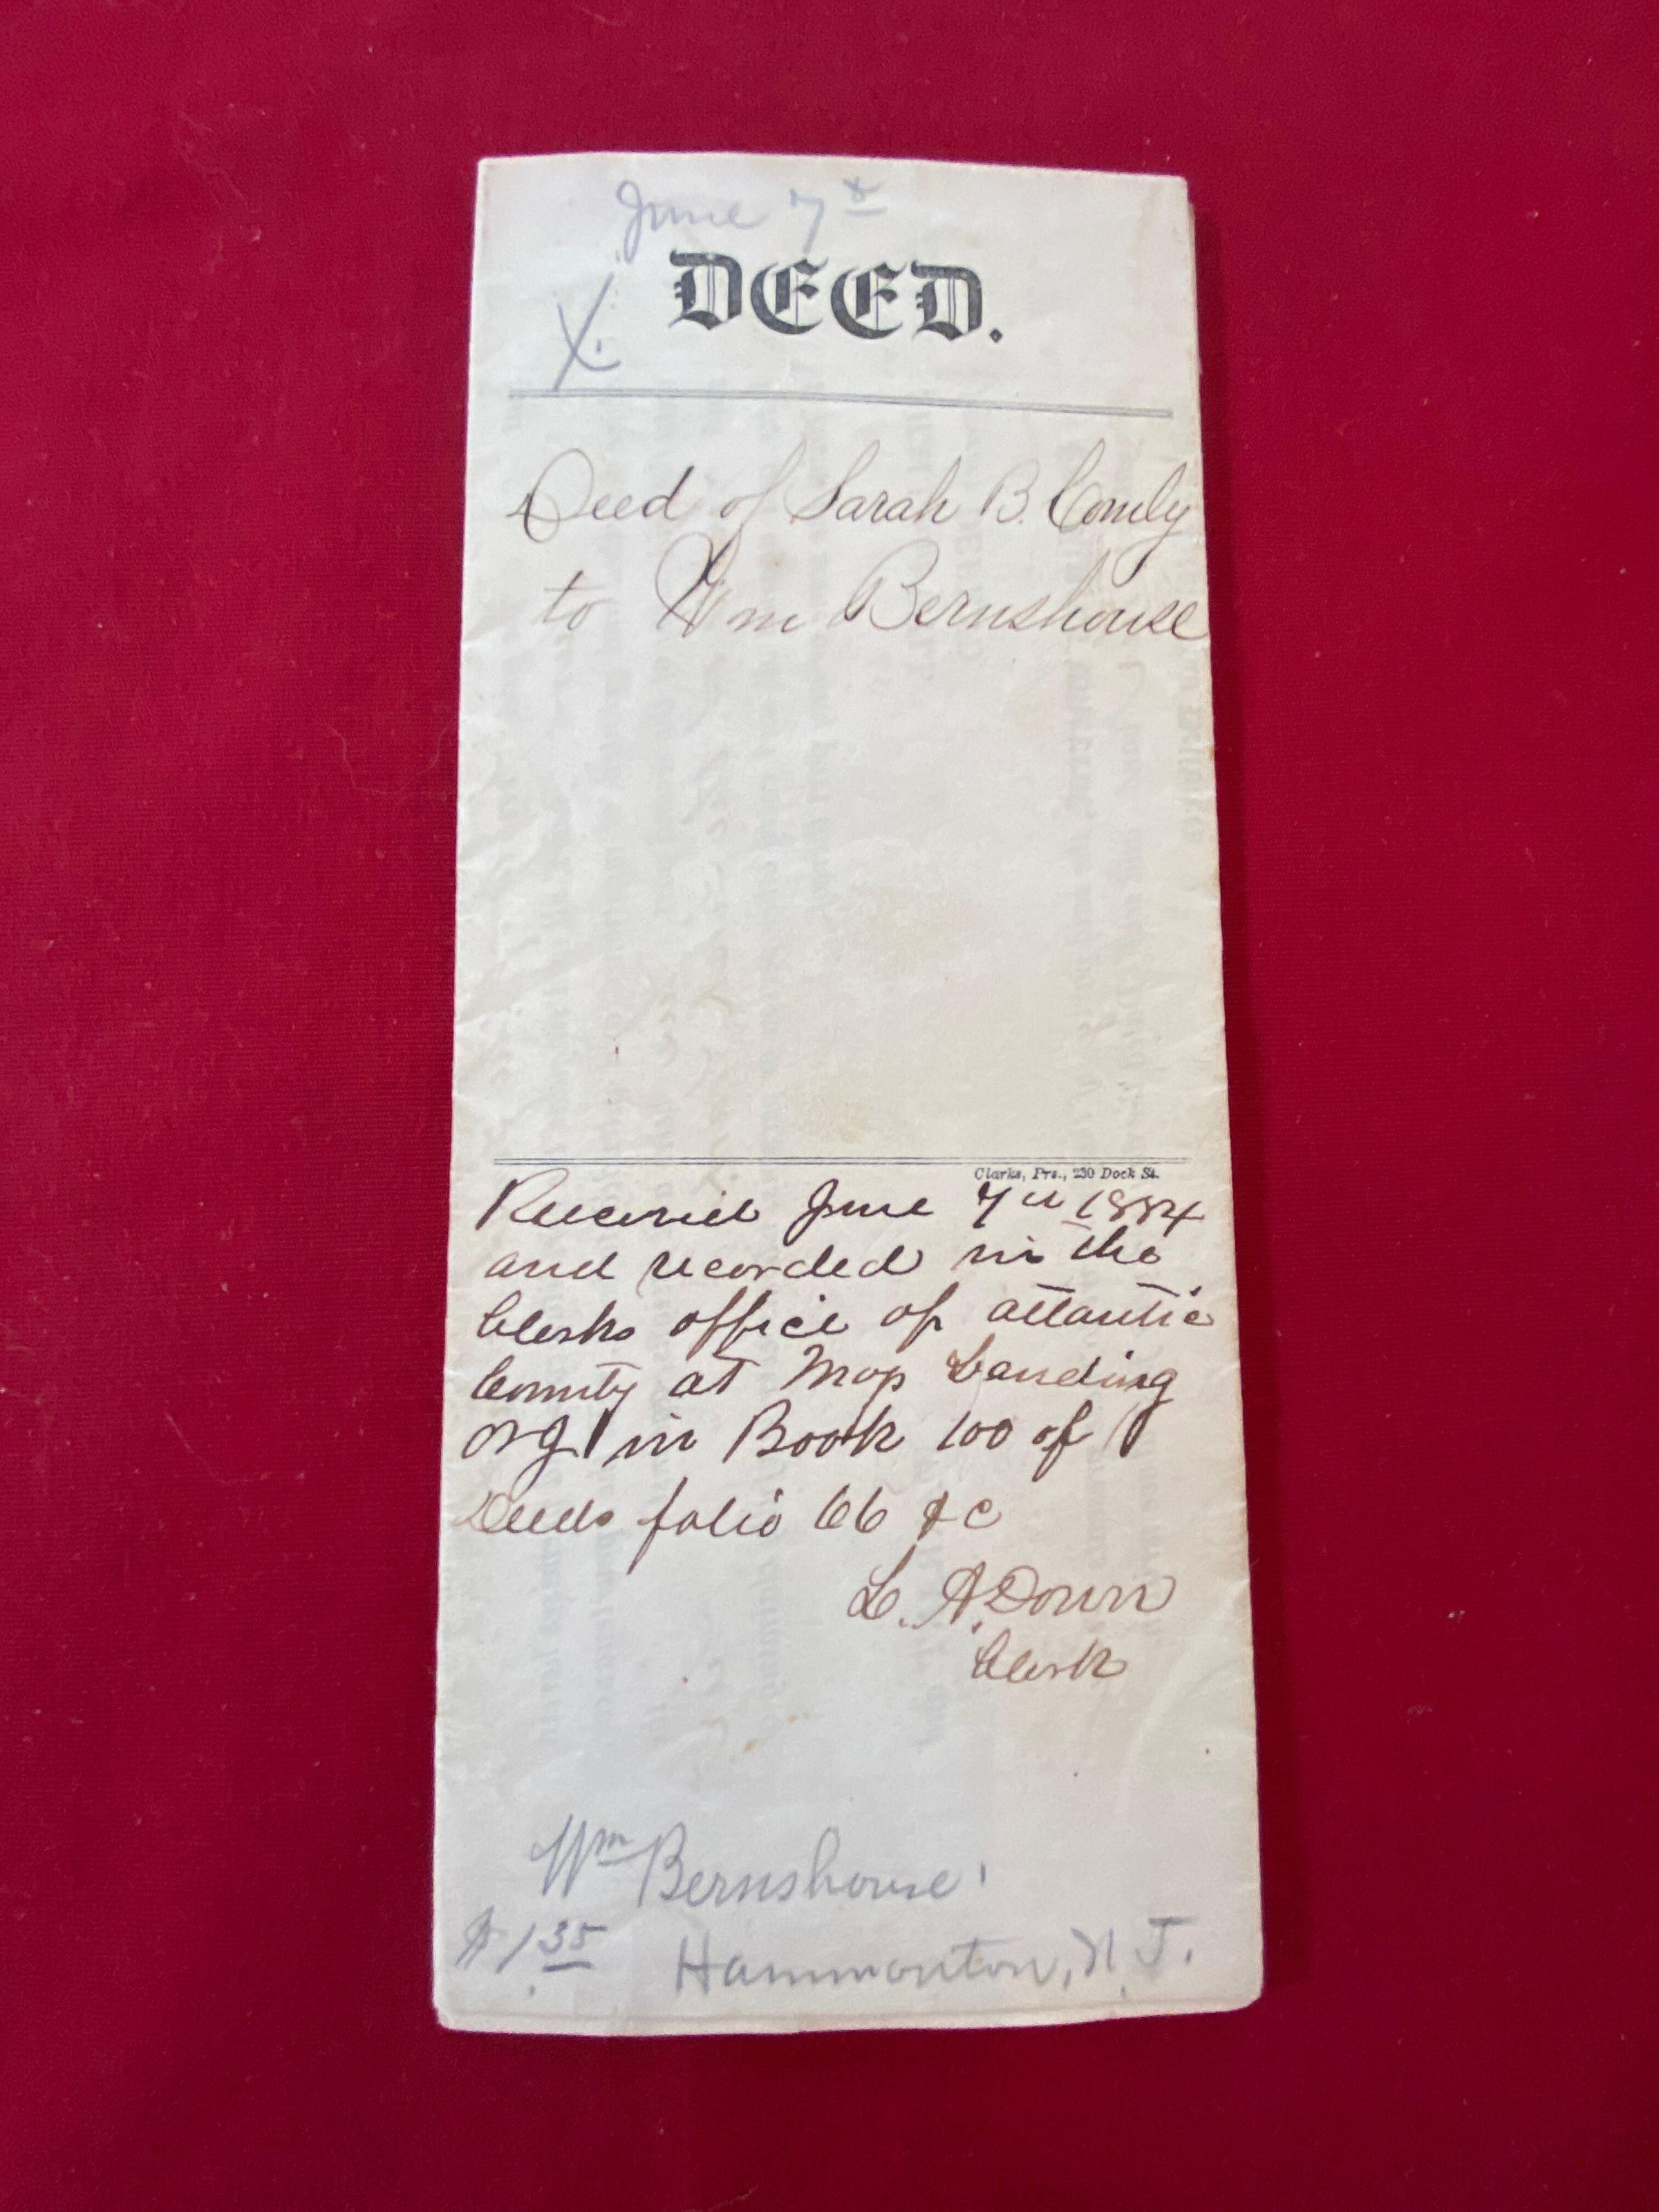 June 7th
X.
DEED.
Deed of Sarah B. Comly
to Wm Bernshouse
Clarks, Prs., 230 Dock St.
Received June 7th 1884
and recorded in the
Clerks office of atlantic
County at Mays Landing
NJ in Book 100 of
Deeds folio 66 &c
L. A. Down
Clerk
Wm Bernshouse
$1.35 Hammonton, N.J.